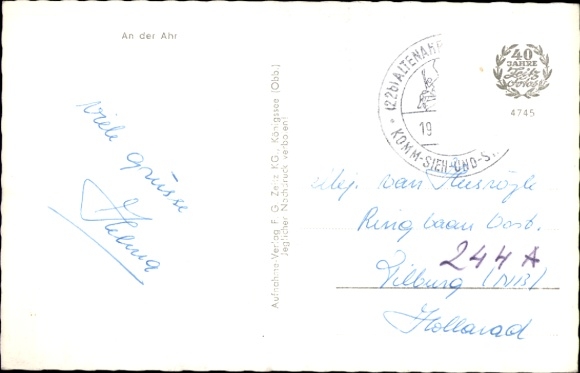 An der Ahr
viele grüsse
Helma
Aufnahme-Verlag F. G. Zeitz KG., Königssee (Obb.)
Jeglicher Nachdruck verboten!
(22b) ALTENAHR
19
KOMM-SIEH-UND-S
40
JAHRE
Zeitz
Fotos
4745
van
Ringbaan Oost.
244 A
Tilburg (NB)
Holland